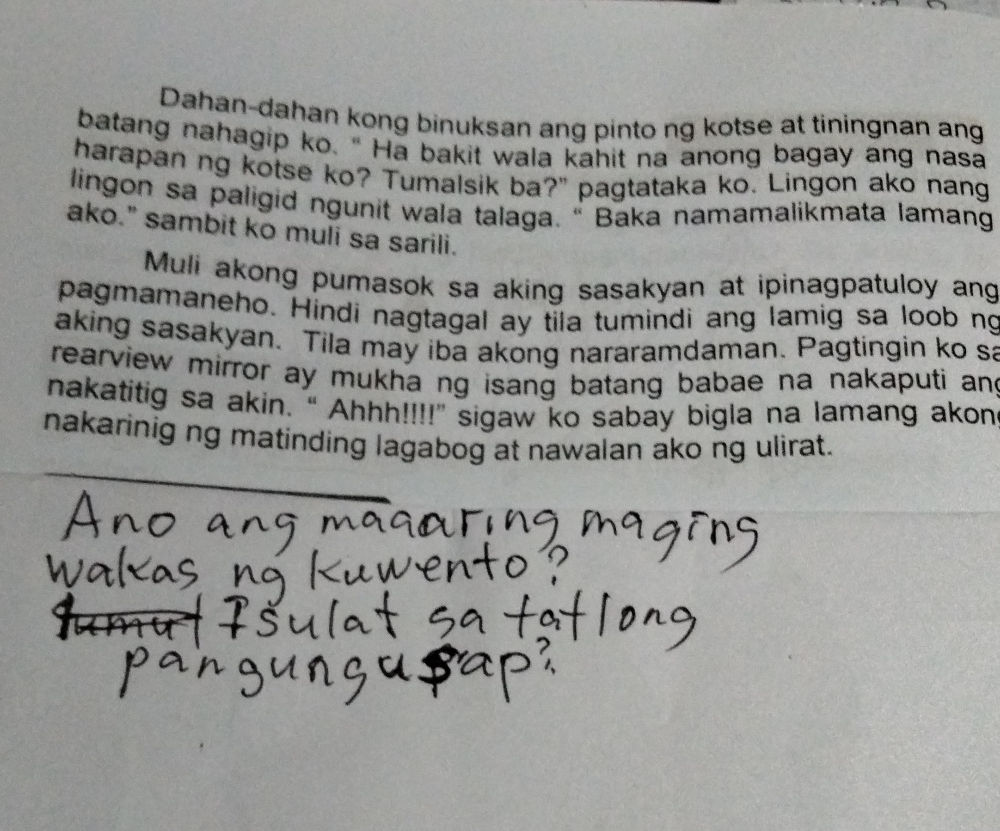 Dahan-dahan kong binuksan ang pinto ng kotse at tiningnan ang
batang nahagip ko. “ Ha bakit wala kahit na anong bagay ang nasa
harapan ng kotse ko? Tumalsik ba?” pagtataka ko. Lingon ako nang
lingon sa paligid ngunit wala talaga. “ Baka namamalikmata lamang
ako.” sambit ko muli sa sarili.
Muli akong pumasok sa aking sasakyan at ipinagpatuloy ang
pagmamaneho. Hindi nagtagal ay tila tumindi ang lamig sa loob ng
aking sasakyan. Tila may iba akong nararamdaman. Pagtingin ko sa
rearview mirror ay mukha ng isang batang babae na nakaputi ang
nakatitig sa akin. “ Ahhh!!!!” sigaw ko sabay bigla na lamang akong
nakarinig ng matinding lagabog at nawalan ako ng ulirat.
Ano ang maaaring maging
wakas ng kuwento?
Isulat sa tatlong
pangungusap?